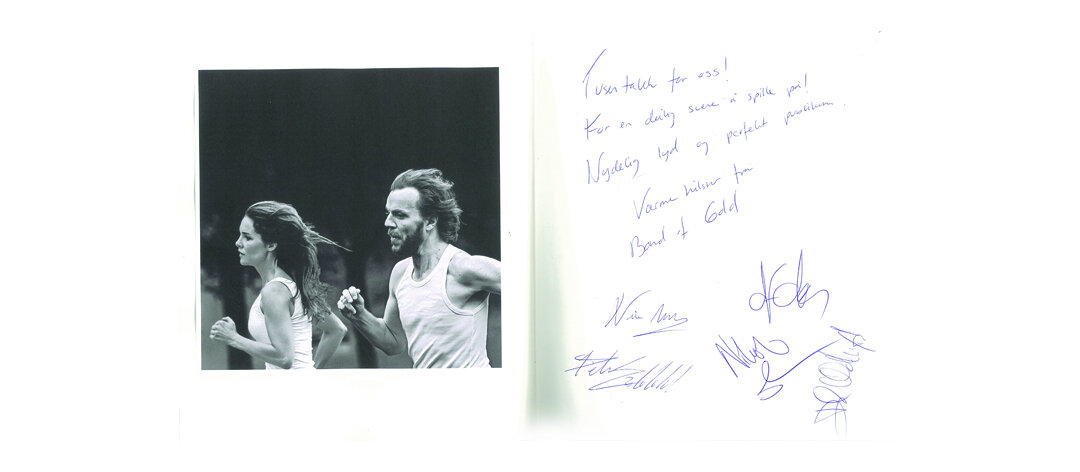 Tusen takk for oss!
For en deilig scene å spille på!
Nydelig lyd og perfekt publikum.
Varme hilsner fra
Band of Gold
Nina